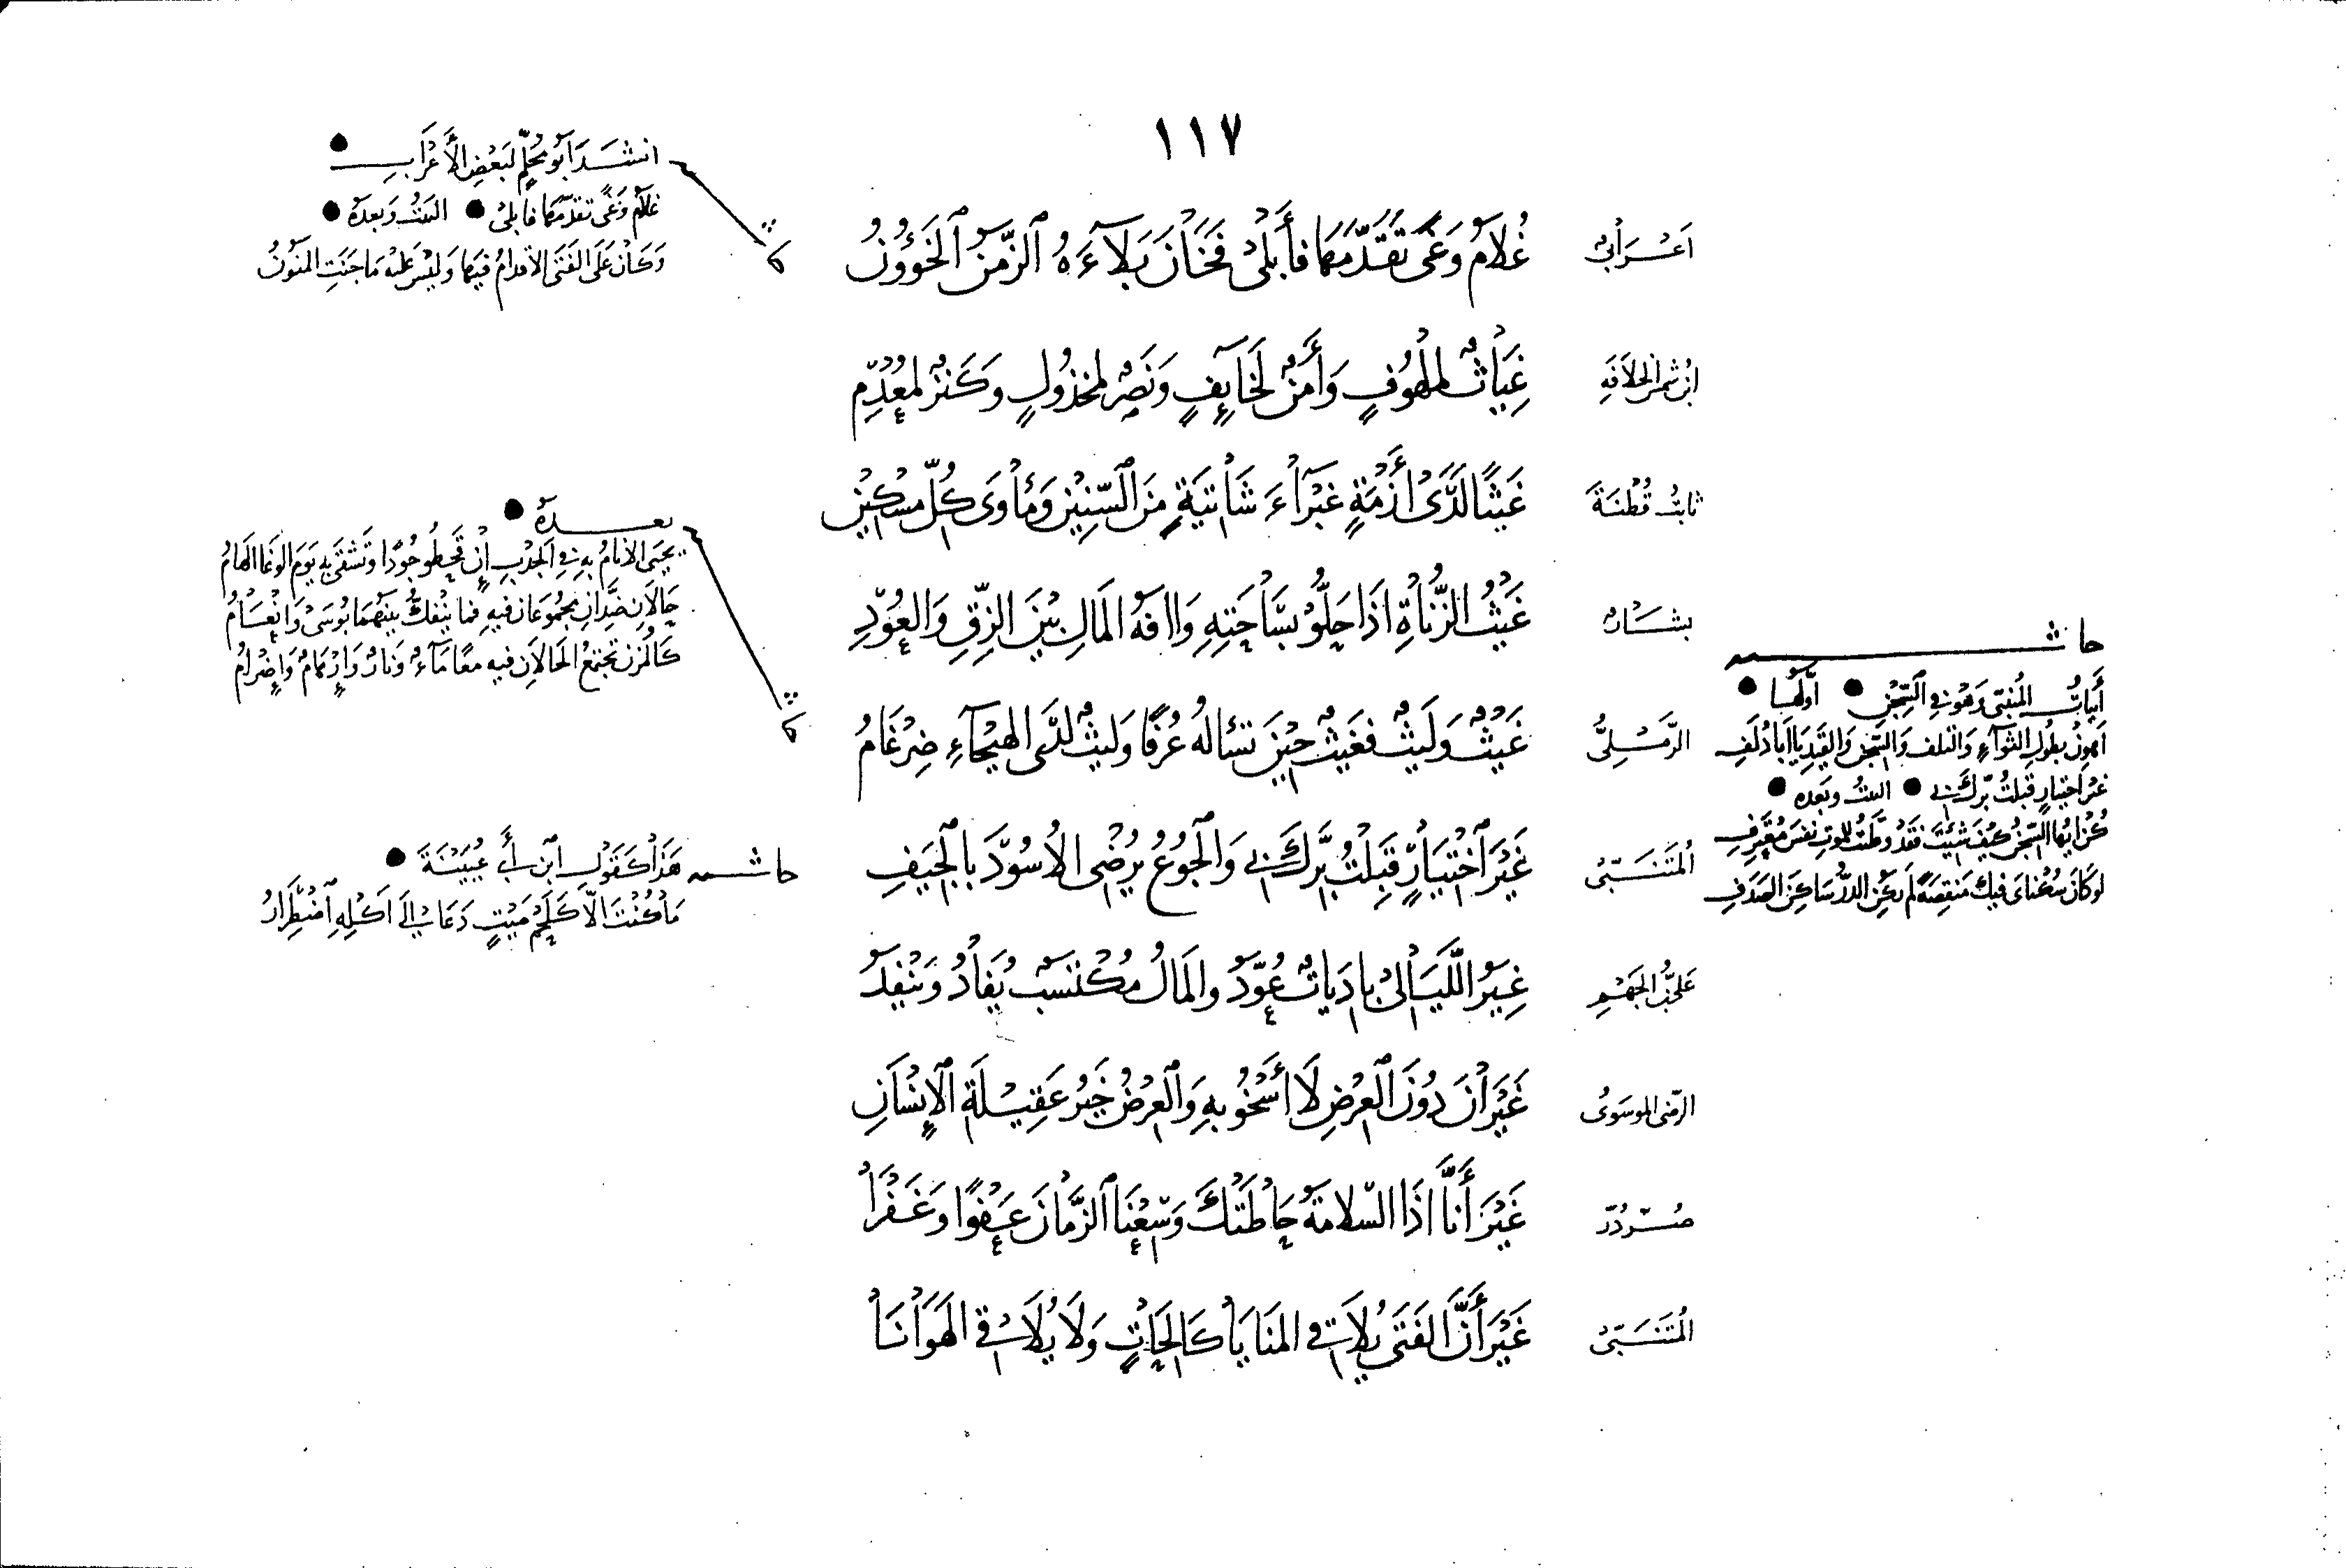 ١١٧
أعرابي
غُلَامُ وَغًى تَقَدَّمَهَا فَأَبْلَى فَخَانَ بَلَاءَهُ الزَّمَنُ الخَؤُونُ
ابن شمس الخلافة
غِيَاثٌ لملهُوفٍ وَأَمْنٌ لخَايِفٍ وَنَصْرٌ لمخذُولٍ وَكَنْزٌ لمُعْدِمِ
ثابت قُطْنَةَ
غَيثًا لَدَى أَزْمَةٍ غَبْرَاءَ شَاتِيَةٍ مِنَ السِّنِيْنِ وَمَأْوَى كُلِّ مسْكِيْنِ
بشار
غَيْثُ الزُّنَاةِ اذَا حَلُّوْ بسَاحَتِهِ وَاافَهُ المَالِ بَيْنَ الزِّقِ وَالعُوْدِ
الرَّمْلِيُّ
غَيْثٌ وَلَيثٌ فغَيثٌ حِيْنَ تسْالهُ عُرْفًا وَليثٌ لدَى الهيْجَآءِ ضِرْغَامُ
المُتَنَبِّي
غَيْرَ اخْتيَارٍ قَبِلْتُ بِرَّكَ بي وَالجُوْعُ يُرْضى الأُسُوْدَ بالجِيَفِ
علي بن الجَهْمِ
غِيَرُ اللَّيَالى بادِيَاتٌ عُوَّدٌ والمَالُ مُكْتسَبٌ يُفَادُ وَينْفِدُ
الرضى الموسوى
غَيْرَ انَّ دُوْنَ العِرْضِ لَا أَسْخُو بِهِ وَالعِرْضُ خَيرُ عَقِيْلَةِ الإِنْسَانِ
صُرَّدُرّ
غَيْرَ أَنَّا اذَا السّلامَةُ حَاطَتْكَ وَسِعْنَا الزَّمَانَ عَفْوًا وَغَفْرَا
المُتَنَبِّي
غَيْرَ أَنَّ الفَتَى يُلَاقِي المنَايَا كَالِحَاتٍ وَلَا يُلَاقِي الهَوَانَا
انشدَ أَبُو مُحَلِّمٍ لبَعْضِ الأَعْرَابِ
غلَامُ وَغًى تقدَّمَهَا فابلى البَيْتُ وَبعدَهُ
وَكَانَ عَلَى الفَتَى الاقدامُ فيهَا وَليْسَ عَليْهِ مَا جَنَتِ المنُوْنُ
بعدهُ
يحيَى الانامُ بهِ في الجدْبِ إِنْ قَحِطُو جُوْدًا وَتَشْقَى بهِ يَوْمَ الوَغَا الهَامُ
حَالَانِ ضِدَّانِ مجمُوعَانِ فيهِ فما ينْفكُّ بينَهُمَا بُوسَى وَإِنْعَامُ
كَالمُزْنِ تجْتمعُ الحَالَانِ فيهِ معًا مَاءٌ وَنارٌ وَإِرْهَامٌ وَإِضْرَامُ
حاشيه هَذَا كَقَوْلِ ابْنِ أَبي عُيَيْنَةَ
مَا كُنْتَ الّا كَلَحْمِ مَيْتٍ دَعَا إِلَى اَكْلِهِ اضْطِرَارُ
حاشيه
أَبياتُ المُتنبّى وَهُوَ في السِّجْنِ اَوَّلهَا
اَهْوِنْ بطُولِ الثوَآءِ وَالتلَفِ وَالسِّجْنِ وَالقَيْدِ يَا أَبَا دُلَفِ
غيْرَ اخْتِيَارٍ قَبلْتُ برَّكَ بي البيتُ وبَعدَه
كُنْ ايُّهَا السِّجْنُ كَيْفَ شِئْتَ فَقَدْ وَطَّنْتُ للموتِ نفسَ مُعْتَرِفِ
لوْ كَانَ سُكْنَاىَ فيكَ مَنقَصَةً لَمْ يَكُنِ الدُّرُّ سَاكِنَ الصَّدَفِ